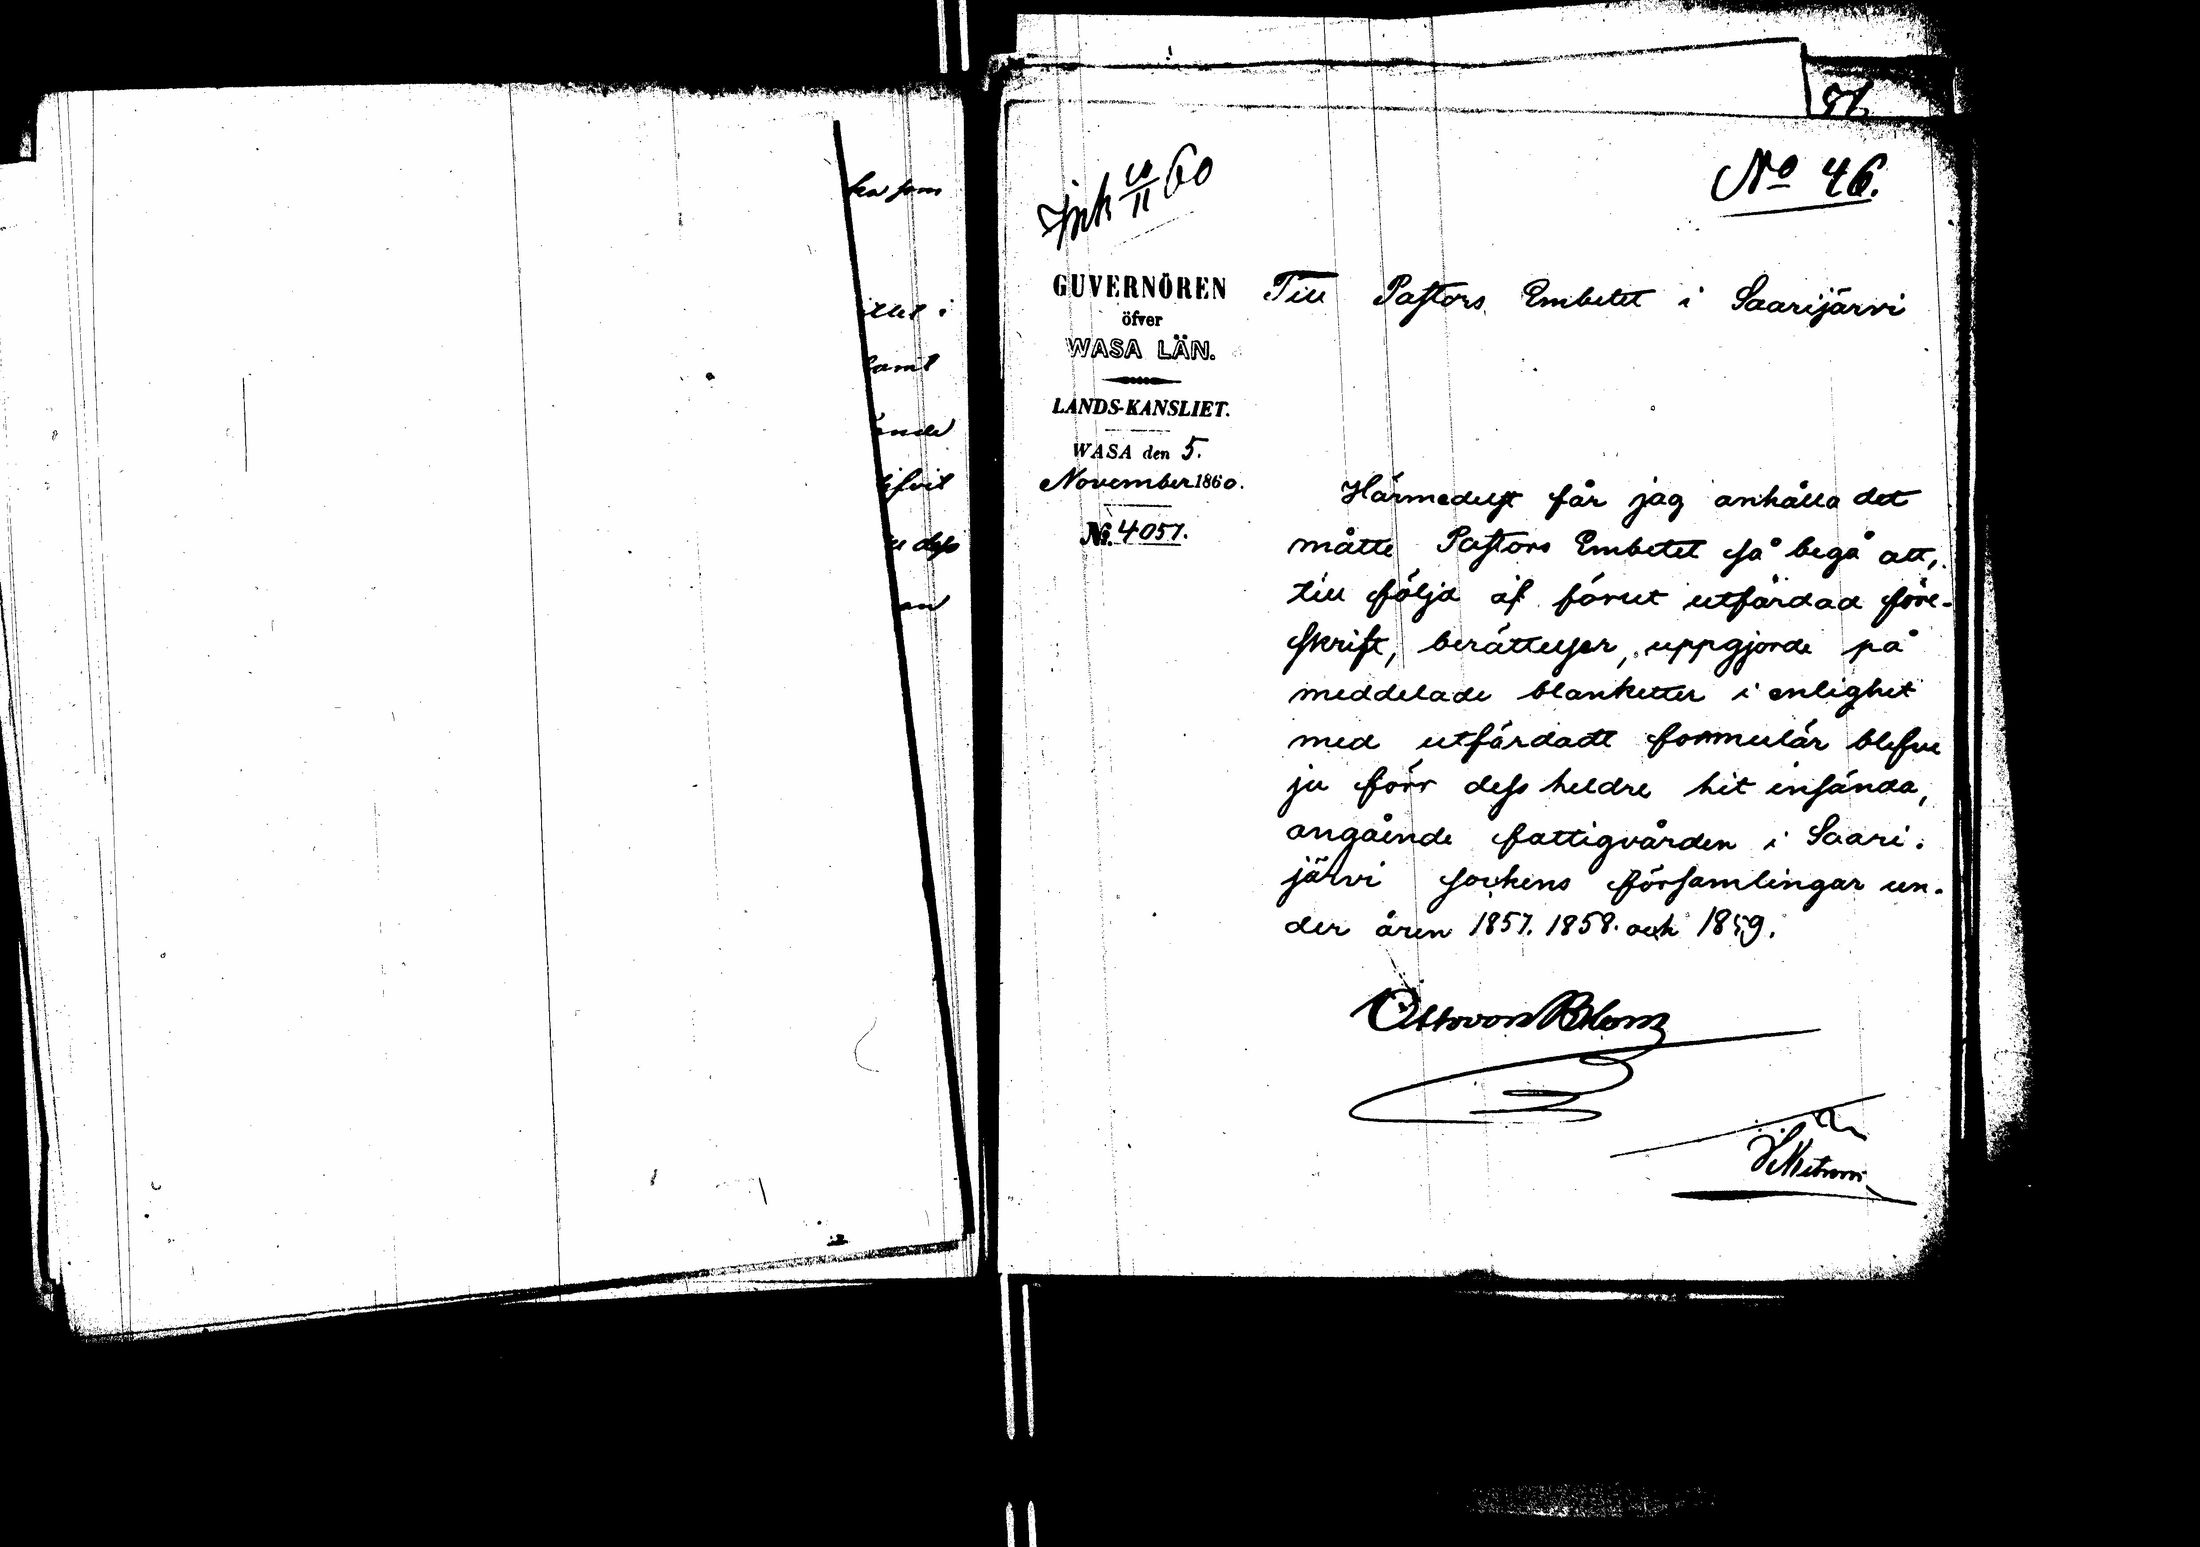 ka som
ittet i
samt
ande
u dess
an
81.
No 46.
Ink 10/11 60
GUVERNÖREN
öfver
WASA LÄN.
LANDS-KANSLIET.
WASA den 5.
November 1860.
No. 4057.
Till Pastors Embetet i Saarijärvi
Härmedelst får jag anhålla det
måtte Pastors Embetet så begå att,
till följd af förut utfärdad före-
skrift, berättelser, uppgjorde på
meddelade blanketter i enlighet
med utfärdadt formulär blefve
ju förr dess heldre hit insända,
angående fattigvården i Saari-
järvi sockens församlingar un-
der åren 1857. 1858. och 1859.
Otto von Blom